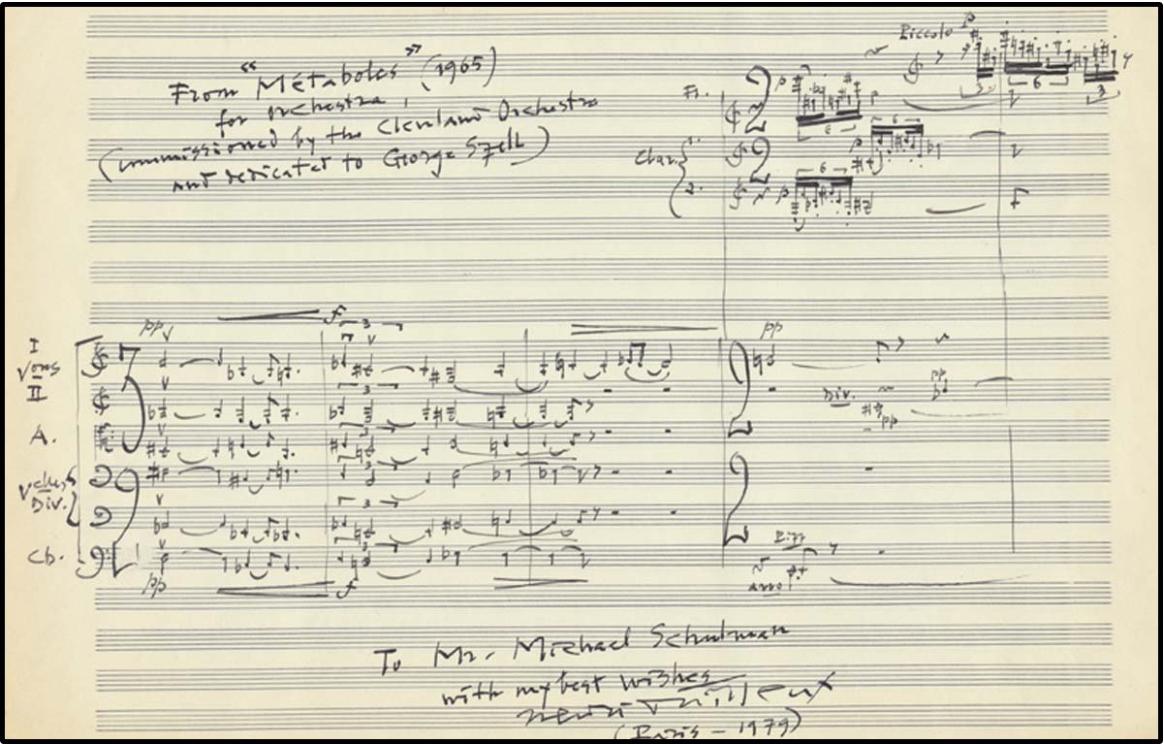 From "Métaboles" (1965)
for orchestra,
(commissioned by the Cleveland Orchestra
and dedicated to George Szell)
Piccolo p
Fl.
Clar. 1.
2.
6
3
6
3
6
6
2
2
p
p
p
I
Vons
II
A.
Vclles
Div.
Cb.
pp
f
3
3
3
3
3
3
pp
f
pp
Div.
pp
pp
Pizz
arco
To Mr. Michael Schulman
with my best wishes
Henri Dutilleux
(Paris - 1979)